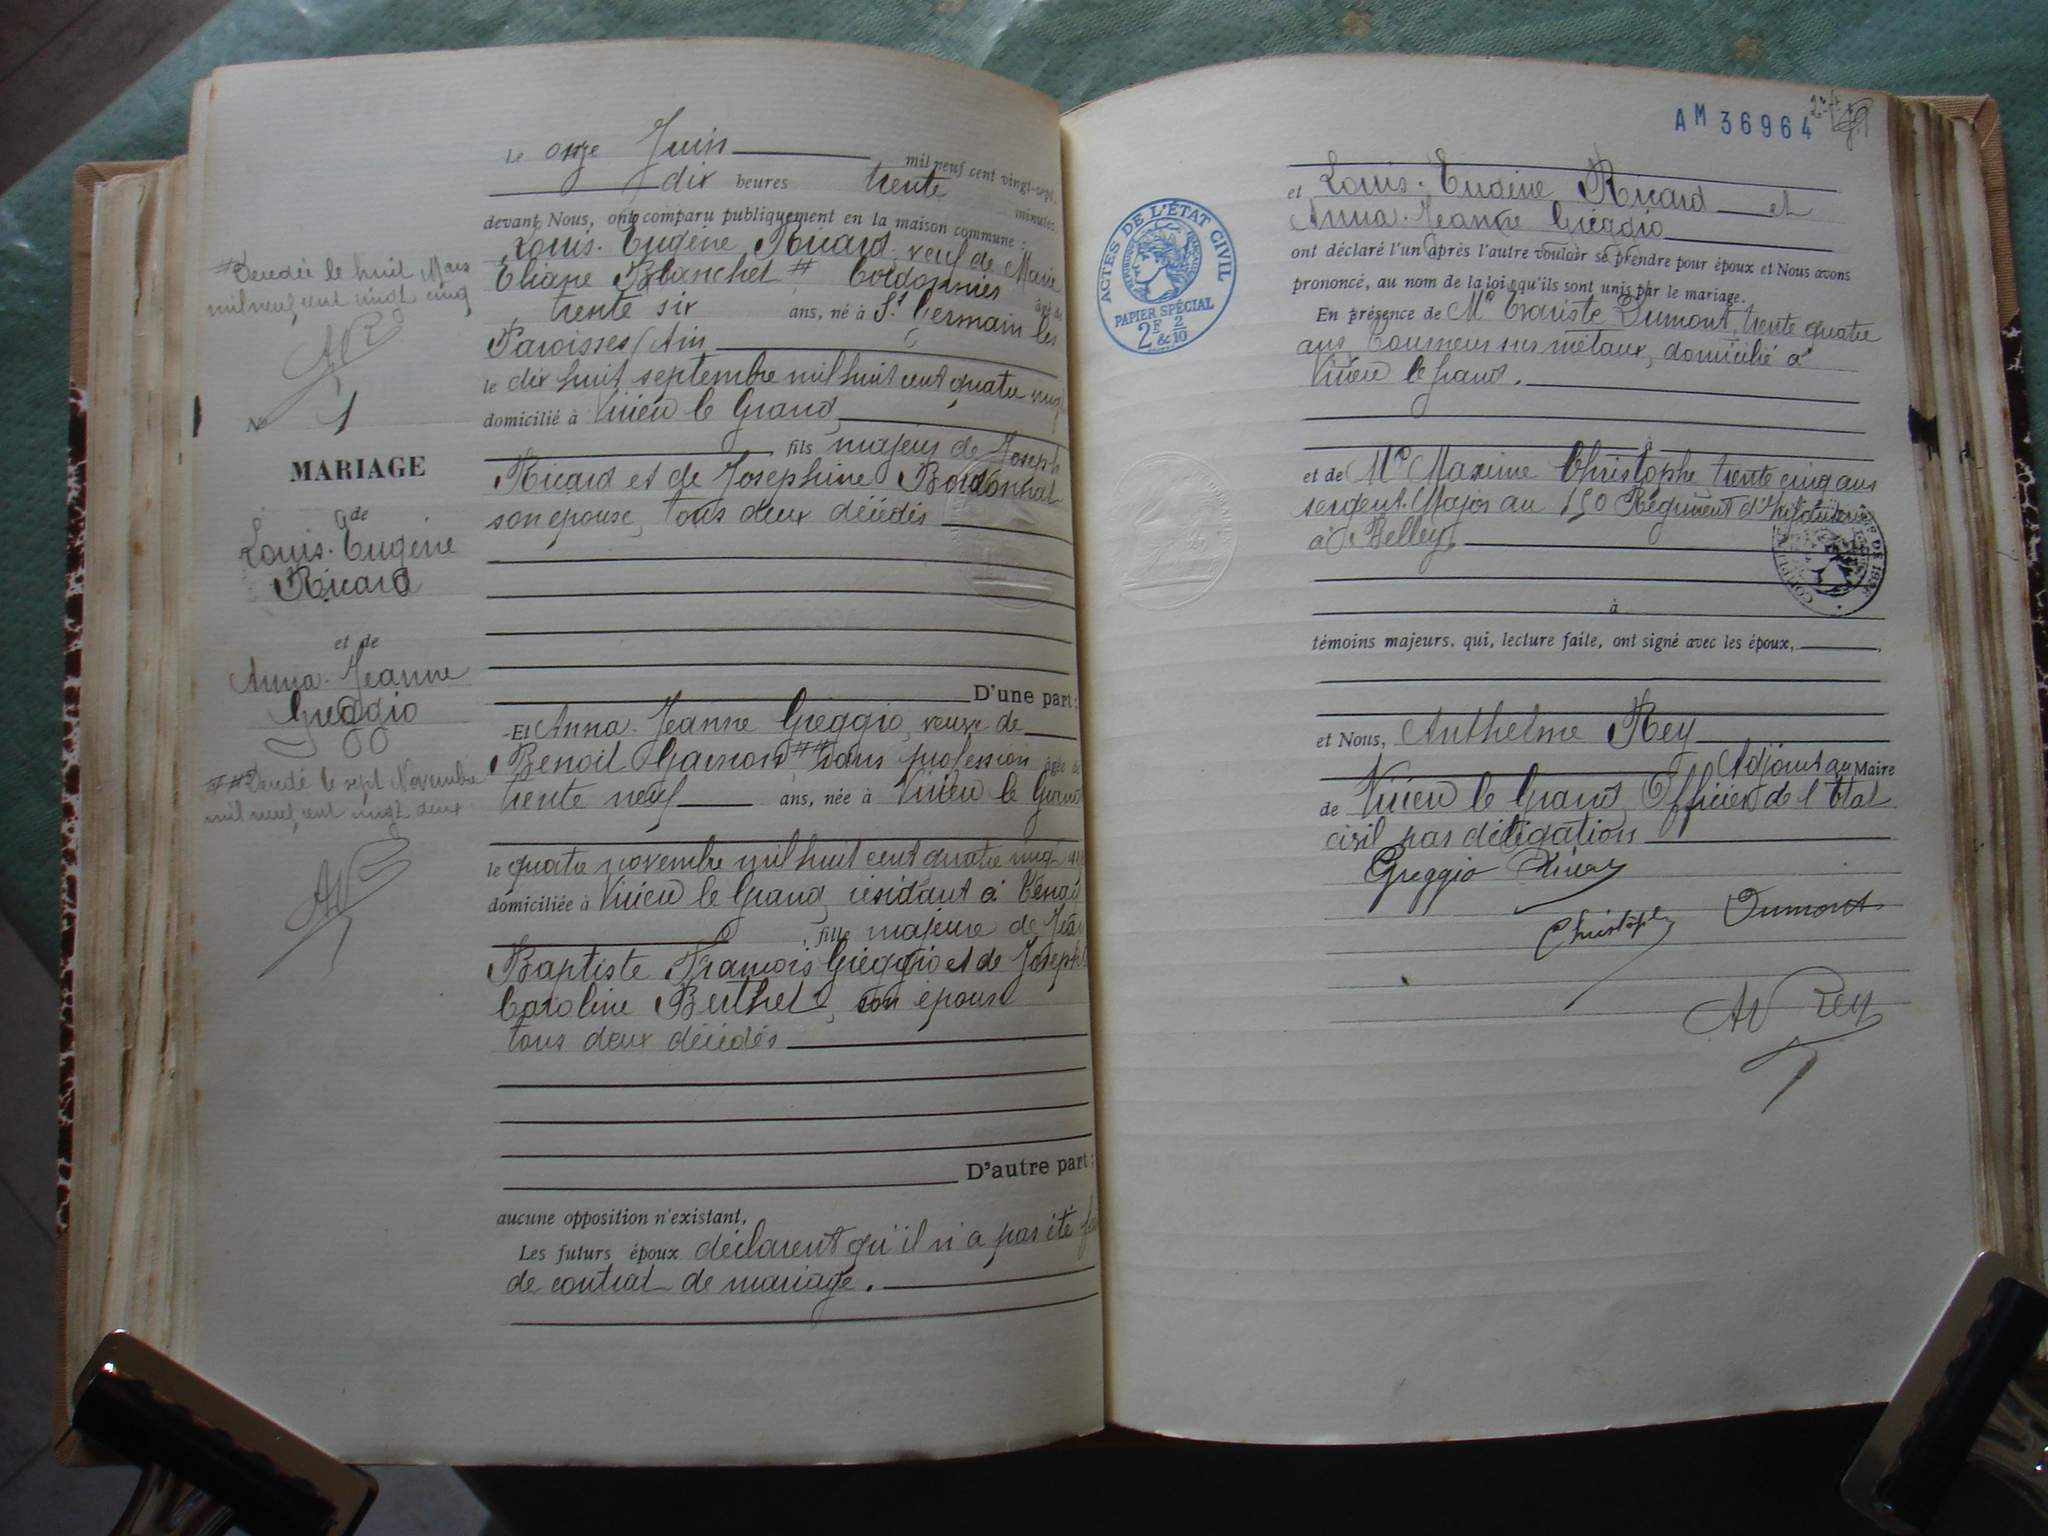 Le onze Juin mil neuf cent vingt-sept,
dix heures trente minutes
devant Nous, ont comparu publiquement en la maison commune :
Louis-Eugène Ricard, veuf de Marie
Eliane Blanchet # Cordonnier âgé de
trente six ans, né à St Germain les
Paroisses (Ain
le dix huit septembre mil huit cent quatre vingt
domicilié à Virieu le Grand
fils majeur de Joseph
Ricard et de Joséphine
son épouse, tous deux décédés
D'une part :
Et Anna-Jeanne Greggio, veuve de
Benoit ## sans profession âgée de
trente neuf ans, née à Virieu le Grand
le quatre novembre mil huit cent quatre vingt
domiciliée à Virieu le Grand, résidant à
, fille majeure de Jean
Baptiste François Greggio et de Joséphi
Caroline Berthet, son épouse
tous deux décédés
D'autre part :
aucune opposition n'existant,
Les futurs époux déclarent qu'il n'a pas été
de contrat de mariage.
# Décédée le huit Mars
mil neuf cent vingt cinq
No 1
MARIAGE
de
Louis-Eugène
Ricard
et de
Anna-Jeanne
Greggio
## Décédé le sept Novembre
mil neuf cent vingt deux
AM 36964
ACTES DE L'ÉTAT CIVIL
PAPIER SPÉCIAL
2F & 2/10
et Louis-Eugène Ricard et
Anna-Jeanne Greggio
ont déclaré l'un après l'autre vouloir se prendre pour époux et Nous avons
prononcé, au nom de la loi, qu'ils sont unis par le mariage.
En présence de Mr Evariste Dumont, trente quatre
ans Tourneur sur métaux, domicilié à
Virieu le Grand.
à
et de Mr Maxime Christophe trente cinq ans
sergent-Major au 150 Régiment d'Infanterie
à Belley
à
témoins majeurs, qui, lecture faite, ont signé avec les époux,
et Nous, Anthelme Rey
Adjoint au Maire
de Virieu le Grand, Officier de l'Etat
civil par délégation
Greggio Ricard
Christophe Dumont
Rey